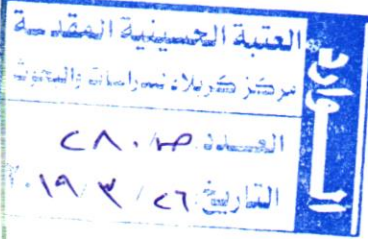 الوارد
العتبة الحسينية المقدسة
مركز كربلاء للدراسات والبحوث
العدد ص/٢٨٠
التاريخ ٢٦ / ٣ / ٢٠١٩